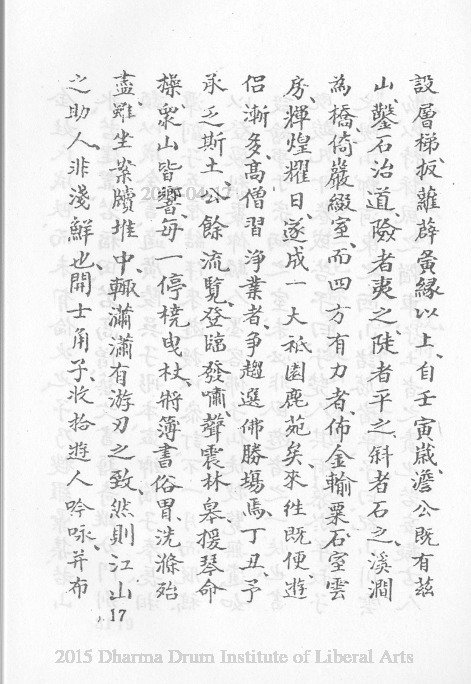 設層梯、扳蘿薜夤緣以上、自壬寅嵗、澹公既有茲
山、鑿石治道、險者夷之、陡者平之、斜者石之、溪澗
為橋、倚巖綴室、而四方有力者、佈金輸粟、石室雲
房、輝煌耀日、遂成一大祇園鹿苑矣、來徃既便、遊
侶漸多、高僧習淨業者、爭趨選佛勝場焉、丁丑、予
承乏斯土、公餘流覽、登臨發嘯、聲震林皋、援琴命
操、衆山皆響、每一停橈曳杖、將簿書俗胃、洗滌殆
盡、雖坐案牘堆中、輒瀟瀟有游刃之致、然則江山
之助人、非淺鮮也、開士角子、收拾遊人吟咏、并布
17
2015 Dharma Drum Institute of Liberal Arts